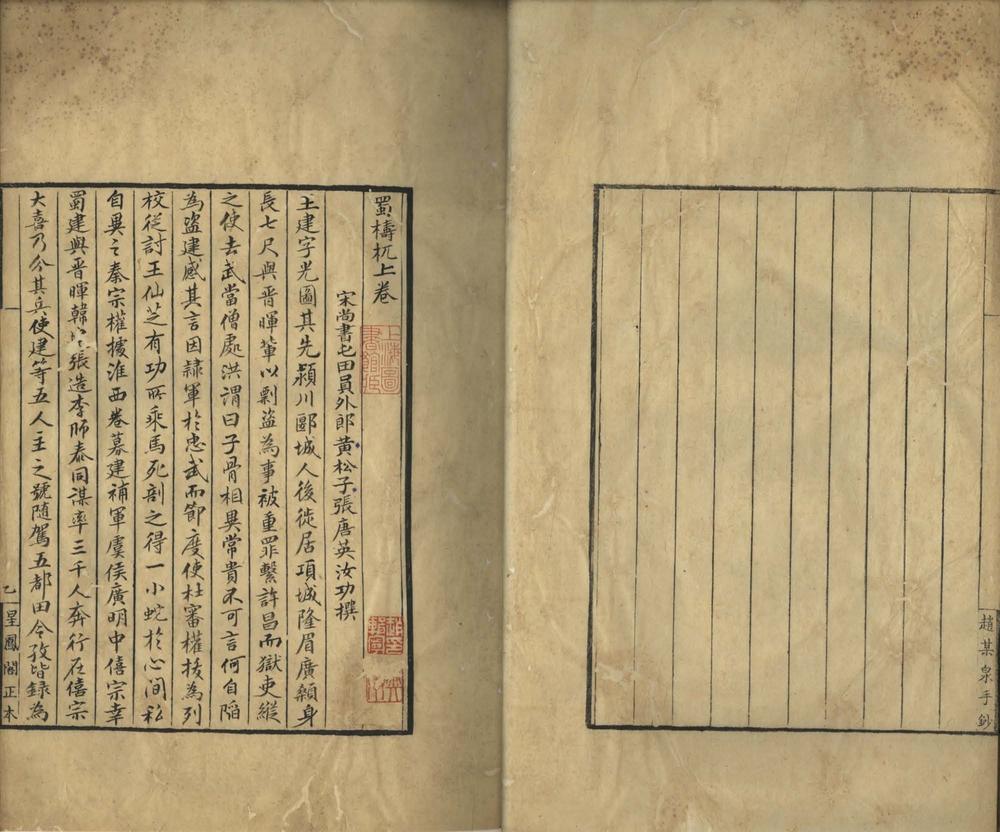 趙某泉手鈔
蜀檮杌上卷
宋尚書屯田員外郎黃松子張唐英汝功撰
王建字光圖其先潁川郾城人後徙居項城隆眉廣顙身
長七尺與晋暉輩以剽盜為事被重罪繫許昌而獄吏縱
之使去武當僧處洪謂曰子骨相異常貴不可言何自陷
為盜建感其言因隸軍於忠武而節度使杜審權拔為列
校從討王仙芝有功所乘馬死剖之得一小蛇於心間私
自異之秦宗權據淮西卷募建補軍虞侯廣明中僖宗幸
蜀建與晋暉韓張造李師泰同謀率三千人奔行在僖宗
大喜乃分其兵使建等五人主之號隨駕五都田令孜皆錄為
乙 星鳳閣正本
上海圖書館藏